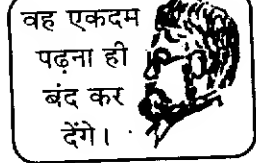 वह एकदम
पढ़ना ही
बंद कर
देंगे।